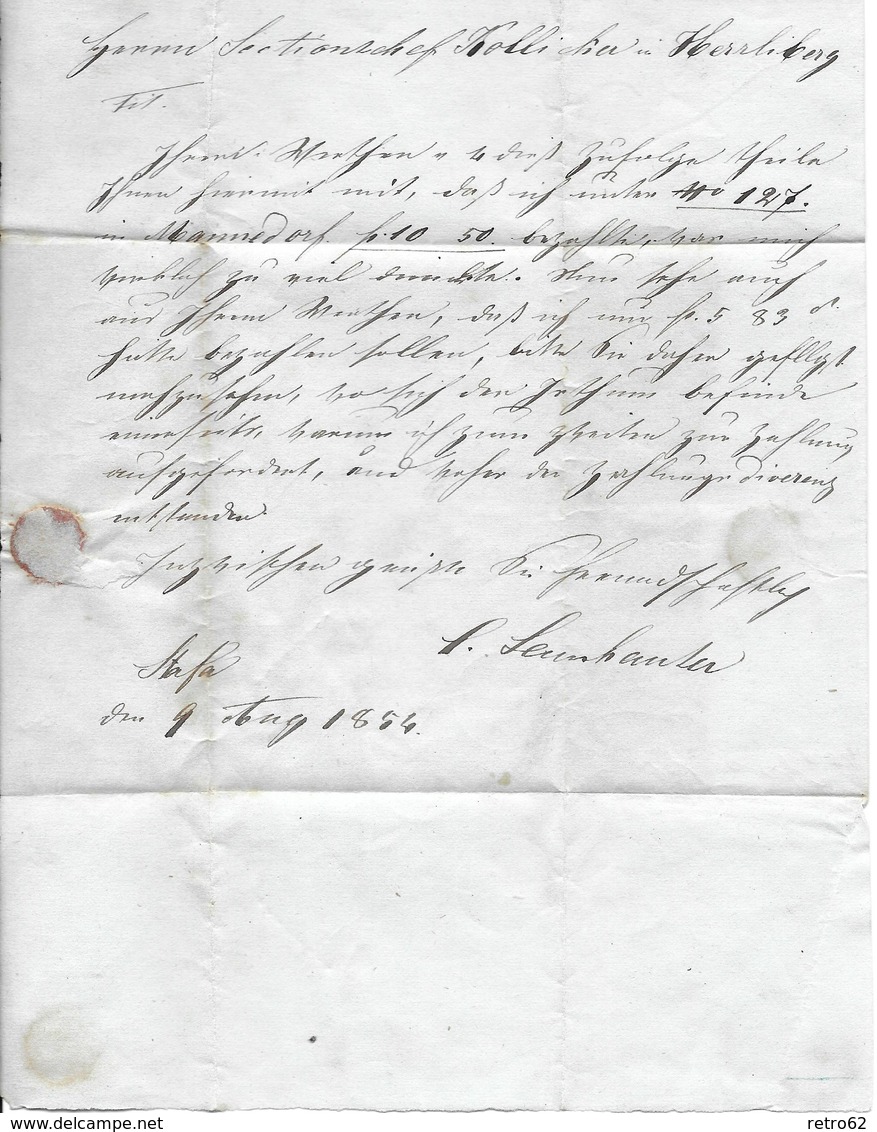 Herrn Sectionschef Kölliker in Herrliberg
Tit.
Ihrem Werthen v 4 dieß zufolge theile
Ihnen hiermit mit, daß ich unter No 127.
in Männedorf fr. 10 50. bezahlte, was mich
wirklich zu viel dünckte. Nun sehe auch
aus Ihrem Werthen, daß ich nur fr. 5 83
hätte bezahlen sollen, bitte Sie daher gefllgst
nachzusehen, wo sich der Irthum befinde
einerseits, warum ich zum zweiten zur Zahlung
aufgefordert, und woher die Zahlungsdiverenz
entstanden.
Inzwischen grüßt Sie freundschaftlich
Stäfa
den 9 Aug 1854.
retro62